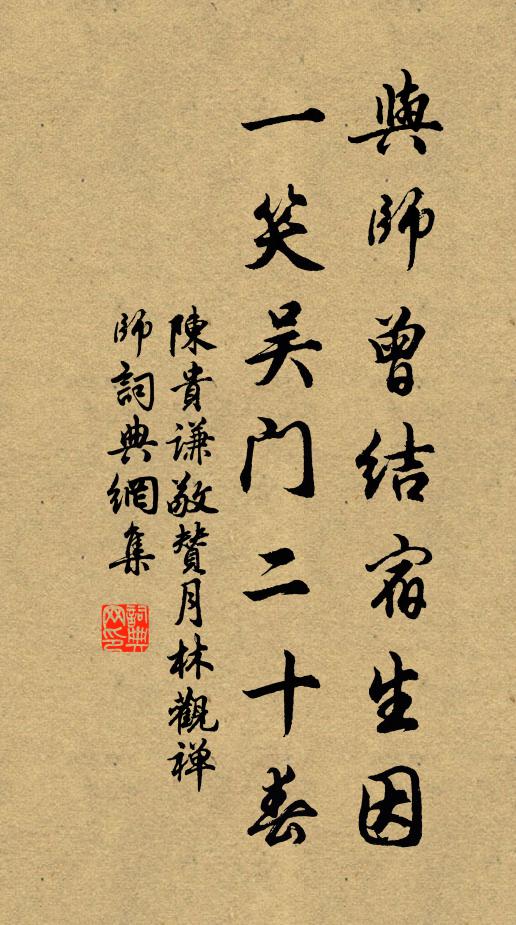 與師曾結宿生因
一笑吴門二十春
陳貴謙敬贊月林觀禅
師詞典網集
詞典网印